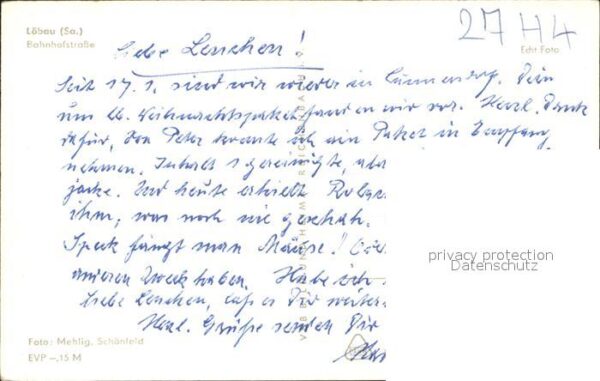 Löbau (Sa.)
Bahnhofstraße
27 H4
Echt Foto
Liebe Lenchen!
Seit 17.1. sind wir wieder in Cunnersdorf. Dein
um Weihnachtspaket fanden wir vor. Herzl. Dank
dafür, Von Peter konnte ich ein Paket in Empfang
nehmen. Inhalt 1 gereinigte,
jacke. Und heute erhielt
ihm, was noch nie geschah.
Speck fängt man Mäuse!
anderen Zweck haben. Habe ich
Liebe Lenchen, daß es Dir weiter
Herzl. Grüße senden Dir
privacy protection
Datenschutz
Foto: Mehlig, Schönfeld
EVP -,15 M